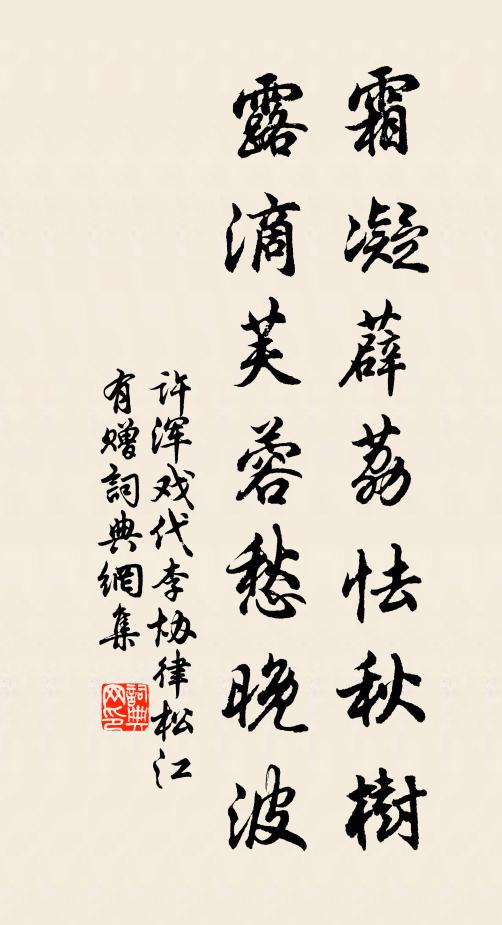 霜凝薜荔怯秋樹
露滴芙蓉愁晚波
许浑戏代李协律松江
有赠詞典網集
詞典网印